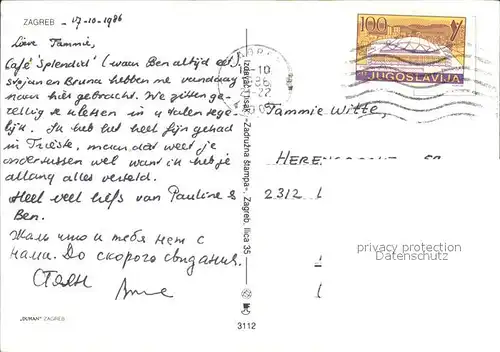 ZAGREB - 17-10-1986
Lieve Tammie,
Café "Splendid" (waar Ben altijd eet),
Stojan en Bruna hebben me vandaag
naar hier gebracht. We zitten ge-
zellig te kletsen in 4 talen tege-
lijk. Ik heb het heel fijn gehad
in Trieste, maar dat weet je
ondertussen wel want ik heb je
allang alles verteld.
Heel veel liefs van Pauline &
Ben.
Жаль что и тебя нет с
нами. До скорого свидания.
Стоян
ZAGREB
3112
Izdavač: Tisak »Zadružna štampa«, Zagreb, Ilica 35
100
JUGOSLAVIJA
Tammie Witte,
2312
privacy protection
Datenschutz